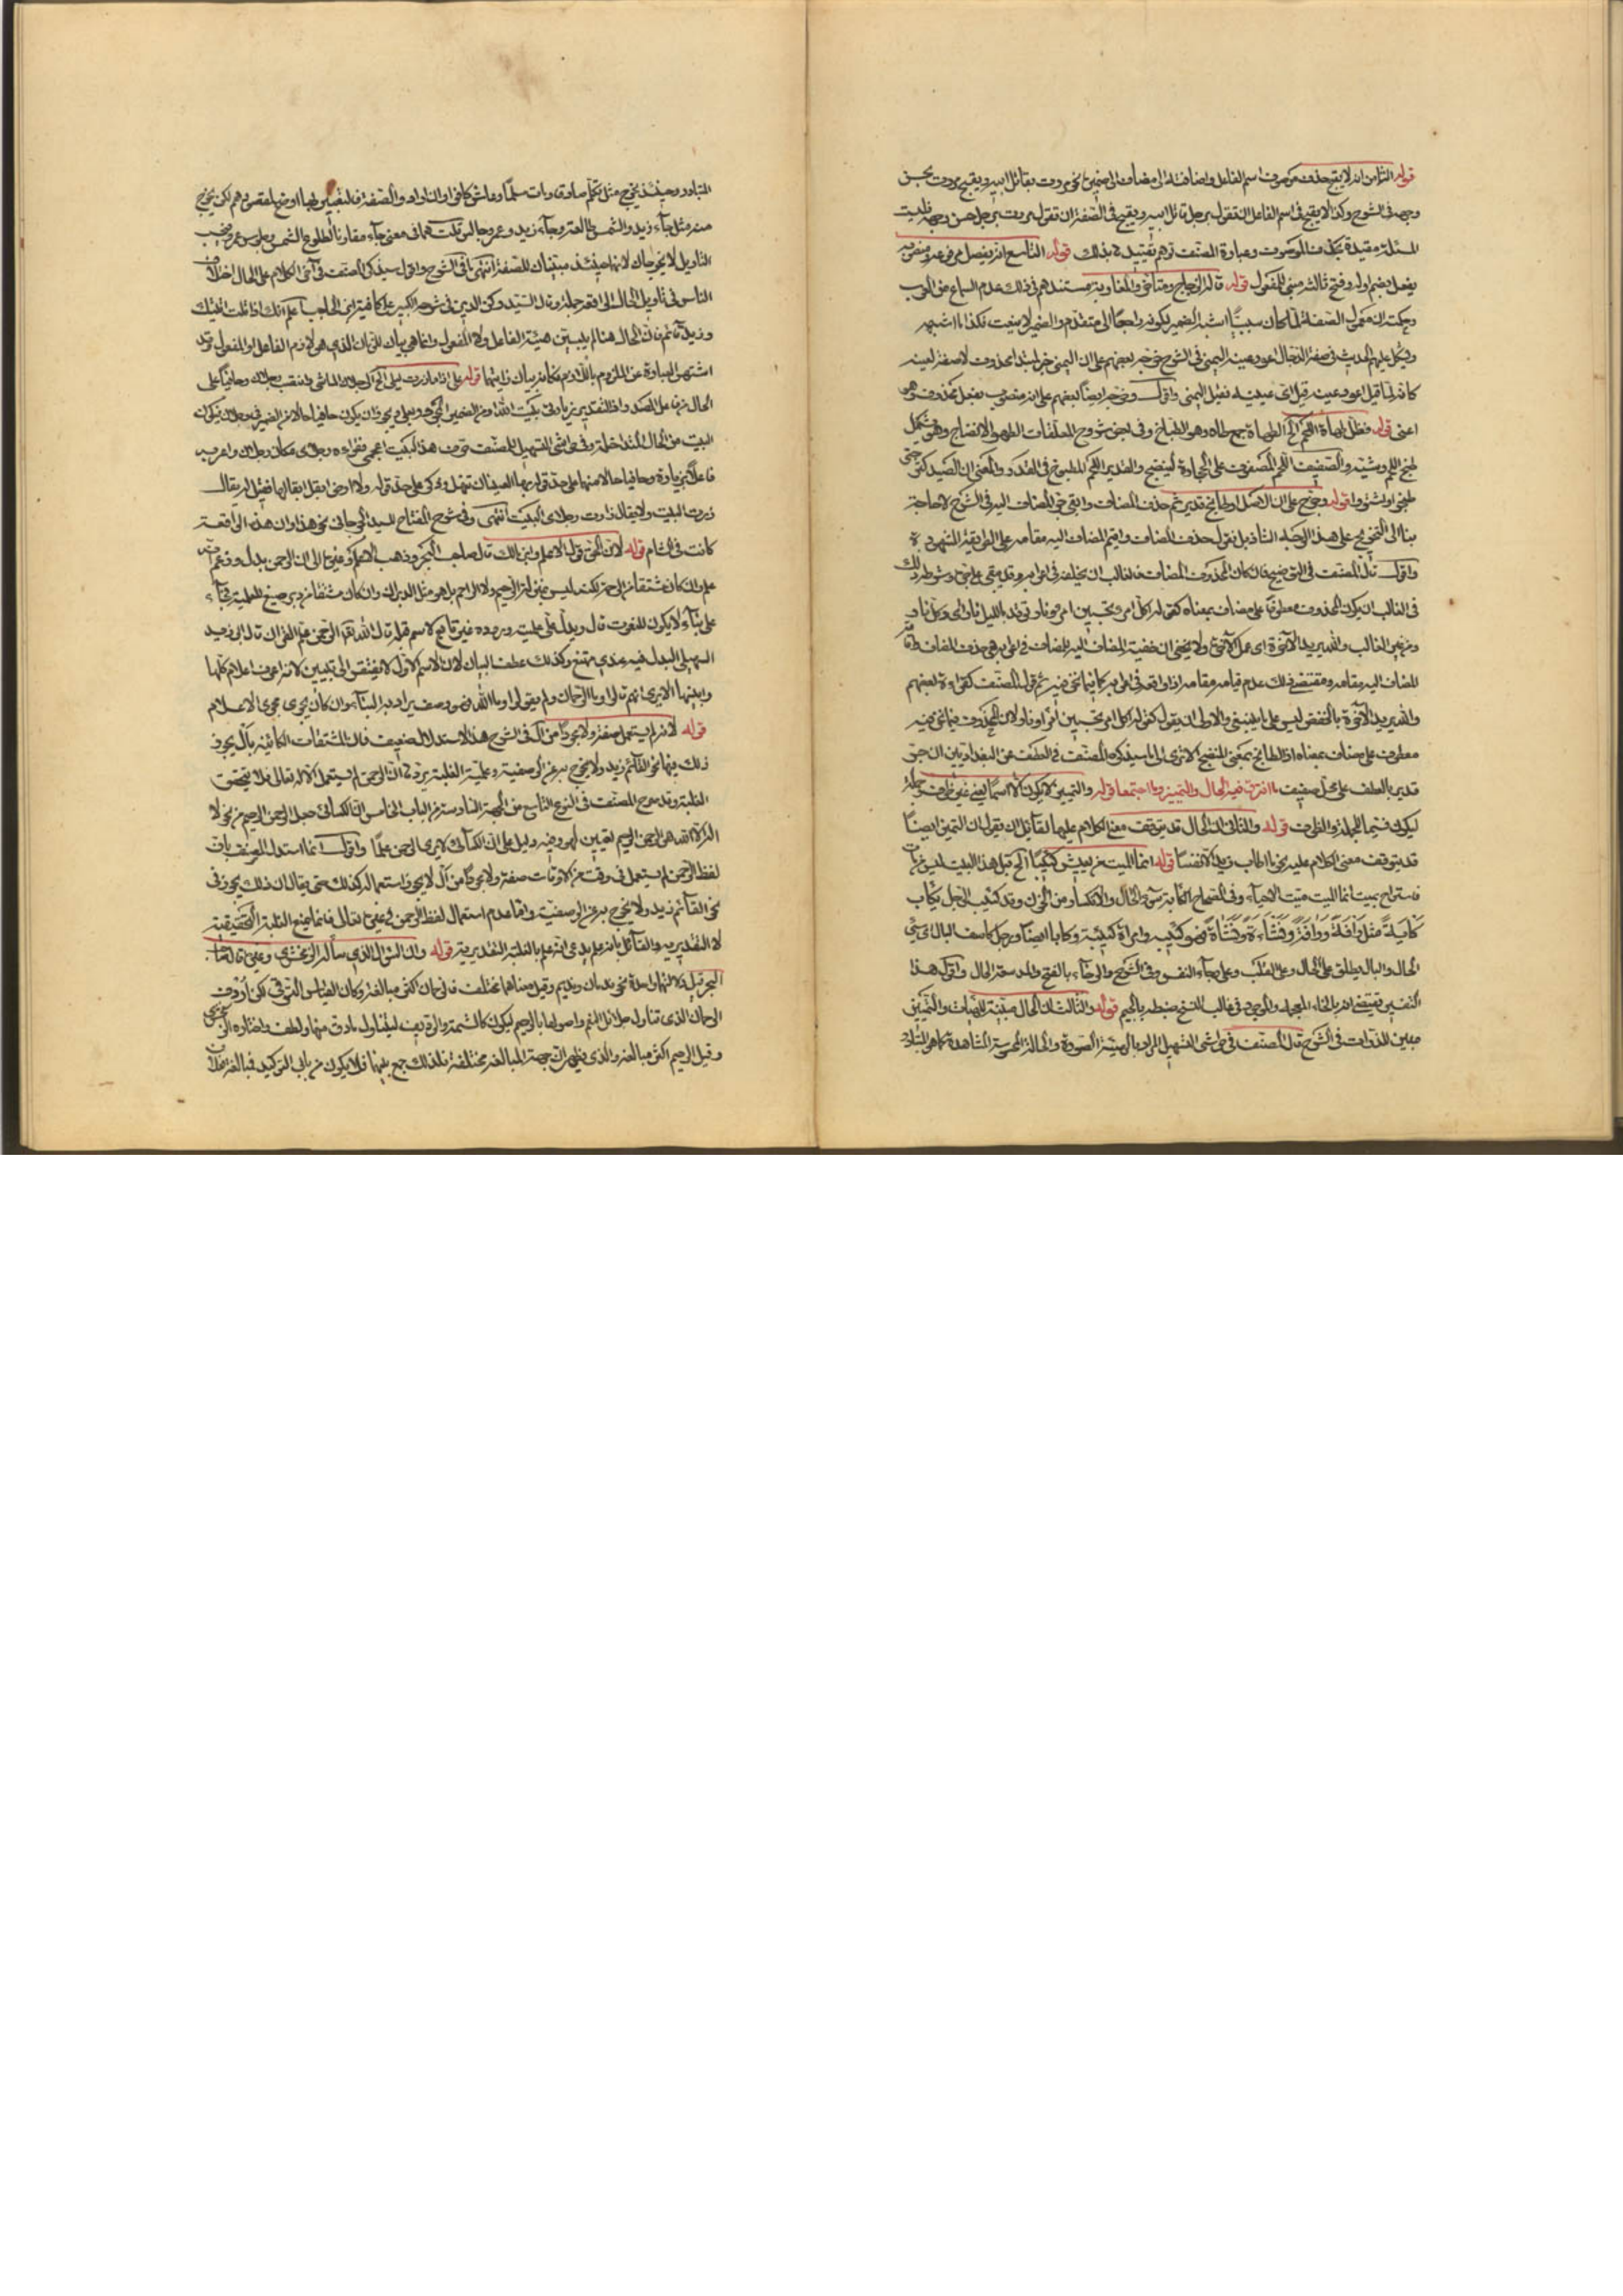 قوله الثامن انه لا يقبح حذف موصوف اسم الفاعل واضافته الى مضاف الى ضميره نحو مررت بقاتل ابيه ويقبح مررت بحسن
وجهه في الشرح وكذا لا يقبح في اسم الفاعل ان تقول برجل قاتل ابيه ويقبح في الصفة ان تقول مررت برجل حسن وجهه فليست
المسئلة مقيدة بحذف الموصوف وعبارة المصنف توهم تقييد بذلك قوله التاسع انه يفصل مرفوعه ومنصوبه
يفصل بضم اوله وفتح ثالثه مبني للمفعول قوله قاله الزجاج ومتأخرو المغاربة مستندهم في ذلك عدم السماع من العرب
وحكمته ان معمول الصفة لما كان سببيا اشبه الضمير لكونه راجعا الى متقدم والضمير لا ينعت فكذا ما اشبهه
ويشكل عليهم الحديث في صفة الدجال اعور عينه اليمنى في الشرح خرجه بعضهم على ان اليمنى خبر لمبتدا محذوف لا صفة لعينه
كانه لما قيل اعور عينه قيل اي عينيه فقيل اليمنى واقول وخرجه ايضا بعضهم على انه منصوب بفعل محذوف وهو
اعني قوله فظل طهاة اللحم الخ الطهاة جمع طاه وهو الطباخ وفي بعض شروح المعلقات الطهو الانضاج وهو يشمل
طبخ اللحم وشيه والصفيف اللحم المصفوف على الحجارة لينضج والقدير اللحم المطبوخ في القدر والمعنى ان الصيد كثر حتى
طبخوا وشووا قوله وخرج على ان الاصل او طابخ قدير ثم حذف المضاف وابقي جر المضاف اليه في الشرح لا حاجة
بنا الى التخريج على هذا الوجه الشاذ بل نقول حذف المضاف واقيم المضاف اليه مقامه على الطريقة المشهورة
واقول قال المصنف في التوضيح فان كان المحذوف المضاف فالغالب ان يخلفه في اعرابه وقد يبقى على جره وشرط ذلك
في الغالب ان يكون المحذوف معطوفا على مضاف بمعناه كقوله اكل امرء تحسبين امرءا ونار توقد بالليل نارا اي وكل نار
ومن غير الغالب والله يريد الآخرة اي عمل الآخرة ولا يخفى ان خفية المضاف اليه للمضاف في اعرابه هي حذف المضاف واقامة
المضاف اليه مقامه ومقتضى ذلك عدم قيامه مقامه اذا لم يقم في اعرابه كما فيما نحن فيه ثم قول المصنف كقراءة بعضهم
والله يريد الآخرة بالخفض ليس على ما ينبغي والاولى ان يقول كقوله اكل امرء تحسبين امرءا ونار لان المحذوف فيما نحن فيه
معطوف على مضاف بمعناه اذ الطابخ بمعنى المنضج الا ترى الى ما سيذكره المصنف في العطف عن البغداديين ان جر
قدير بالعطف على محل صفيف ما افترق فيه الحال والتمييز وما اجتمعا قوله والتمييز لا يكون الا اسما يعني غير ظرف وجملة
ليكون قسيما للجملة والظرف قوله والثاني ان الحال قد يتوقف معنى الكلام عليها لقائل ان يقول ان التمييز ايضا
قد يتوقف معنى الكلام عليه نحو ما طاب زيد الا نفسا قوله انما الميت من يعيش كئيبا الخ قبل هذا البيت ليس من مات
فاستراح بميت انما الميت ميت الاحياء وفي الصحاح الكآبة سوء الحال والانكسار من الحزن وقد كئب الرجل يكأب
كأبة وكآبة مثل رأفة ورآفة ونشأة ونشاءة فهو كئيب وامرأة كئيبة وكأباء ايضا ورجل كاسف البال اي سيئ
الحال والبال يطلق على الحال وعلى القلب وعلى رخاء النفس وفي الشرح والرخاء بالفتح والمد سعة الحال واقول هذا
التفسير يقتضي انه بالخاء المعجمة والموجود في غالب النسخ ضبطه بالجيم قوله والثالث ان الحال مبينة للهيئات والتمييز
مبين للذوات في الشرح قال المصنف في حواشي التسهيل المراد بالهيئة الصورة والحالة المحسوسة المشاهدة كما هو المتبادر
المتبادر وحينئذ يخرج مثل تكلم صادقا ومات مسلما وعاش كافرا وان ارادوا الصفة فالتعبير بها اوضح لمقصودهم لكن يخرج
عنه مثل جاء زيد والشمس طالعة وجاء زيد وعمرو جالس قلت هما في معنى جاء مقارنا لطلوع الشمس وجلوس عمرو وبحسب
التأويل لا يخرجان لانهما حينئذ مبينان للصفة انتهى ما في الشرح واقول سيذكر المصنف في آخر الكلام على الحال اختلاف
الناس في تأويل الحال الواقعة جملة وقال السيد ركن الدين في شرحه الكبير على كافية ابن الحاجب اعلم انك اذا قلت اتيتك
وزيد قائم فان الحال هنا لم يبين هيئة الفاعل ولا المفعول وانما هي بيان للزمان الذي هو لازم الفاعل او المفعول وقد
اشتهر العبارة عن الملزوم باللازم فكانه بيان لهيئتهما قوله على اذا ما زرت ليلى الخ الرجلان الماشي وانتصب رجلان وحافيا على
الحال من فاعل المصدر اذ التقدير زيارتي بيت الله ومن الضمير المجرور بعلي ويجوز ان يكون حافيا حالا من الضمير في رجلان فيكون
البيت من الحال المتداخلة وفي حواشي التسهيل للمصنف حرف هذا البيت اعجمي فقراءه رجلاي مكان رجلان واعربه
فاعلا بزيارة وحافيا حالا منهما على حد قوله بها العينان تنهل وذكر على حد قوله ولا ارض ابقل ابقالها فقيل له يقال
زرت البيت ولا يقال زارت رجلاي البيت انتهى وفي شرح المفتاح للسيد الجرجاني نحو هذا وان هذه الواقعة
كانت في الشام قوله لان الحق قول الاعلم وابن مالك قال صاحب البحر وذهب الاعلم وغيره الى ان الرحمن بدل وزعم انه
علم وان كان مشتقا من الرحمة لكنه ليس بمنزلة الرحيم ولا الراحم بل هو مثل الدبران وان كان مشتقا من دبر صيغ للعلمية فجاء
على بناء لا يكون للنعوت قال ويدل على علميته وروده غير تابع لاسم قبله قال الله تعالى الرحمن علم القرآن قال ابو زيد
السهيلي البدل فيه عندي ممتنع وكذلك عطف البيان لان الاسم الاول لا يفتقر الى تبيين لانه اعرف الاعلام كلها
وابينها الا ترى انهم قالوا وما الرحمن ولم يقولوا وما الله فهو وصف يراد به الثناء وان كان يجري مجرى الاعلام
قوله لانه لم يستعمل صفة ولا مجردا من ال في الشرح هذا الاستدلال ضعيف فان المشتقات الكائنة بال يجوز
ذلك فيها نحو القائم زيد ولا يخرج به عن الوصفية وعلمية الغلبة يرد ان الرحمن لم يستعمل الا لله تعالى فلا يتحقق
الغلبة وقد صرح المصنف في النوع التاسع من الجهة السادسة من الباب الخامس ان الكسائي جعل الرحمن الرحيم من نحو لا
اله الا الله هو الرحمن الرحيم نعتين لهو وفيه دليل على ان الكسائي لا يرى الرحمن علما واقول انما استدل المصنف بان
لفظ الرحمن لم يستعمل في وقت من الاوقات صفة ولا مجردا من ال لا يجوز استعماله كذلك حتى يقال ان ذلك يجوز في
نحو القائم زيد ولا يخرج به عن الوصفية واما عدم استعمال لفظ الرحمن في غيره تعالى فانما يمنع الغلبة الحقيقية
لا التقديرية والقائل بانه علم يدعي انه علم بالغلبة التقديرية قوله وان السؤال الذي سأله الزمخشري وغيره قال صاحب
البحر قيل دلالتهما واحدة نحو ندمان ونديم وقيل معناهما مختلف فالرحمن اكثر مبالغة وكان القياس الترقي لكن اردف
الرحمن الذي تناول جلائل النعم واصولها بالرحيم ليكون كالتتمة والرديف ليتناول ما دق منها ولطف واختاره الزمخشري
وقيل الرحيم اكثر مبالغة والذي يظهر ان جهة المبالغة مختلفة فلذلك جمع بينهما فلا يكون من باب التوكيد فمبالغة فعلان